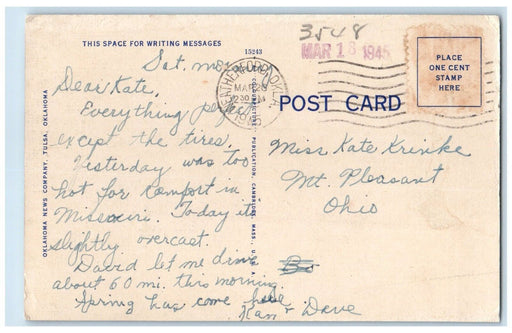 THIS SPACE FOR WRITING MESSAGES
15243
3548
MAR 18 1945
WEATHERFORD, OKLA.
MAR 26
230 PM
PLACE
ONE CENT
STAMP
HERE
POST CARD
OKLAHOMA NEWS COMPANY, TULSA, OKLAHOMA
PUBLICATION, CAMBRIDGE, MASS., U.S.A.
Sat.
Dear Kate,
Everything
except the tires.
Yesterday was too
hot for comfort in
Missouri. Today its
slightly overcast.
David let me drive
about 60 mi. this morning.
Spring has come here
Kan + Dave
Miss Kate Krinke
Mt. Pleasant
Ohio